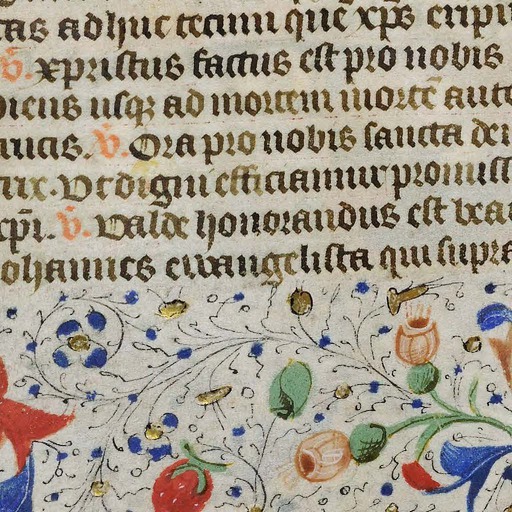 tas adhuc tecum que xp̄s eripu
V̄. xpristus factus est pro nobis
diens usqꝫ ad mortem mortē aute
crucis. V̄. Ora pro nobis sancta dei
trix. Vt digni efficiamur promiss
xp̄i. V̄. Valde honorandus est bea
iohannes ewangelista qui supra